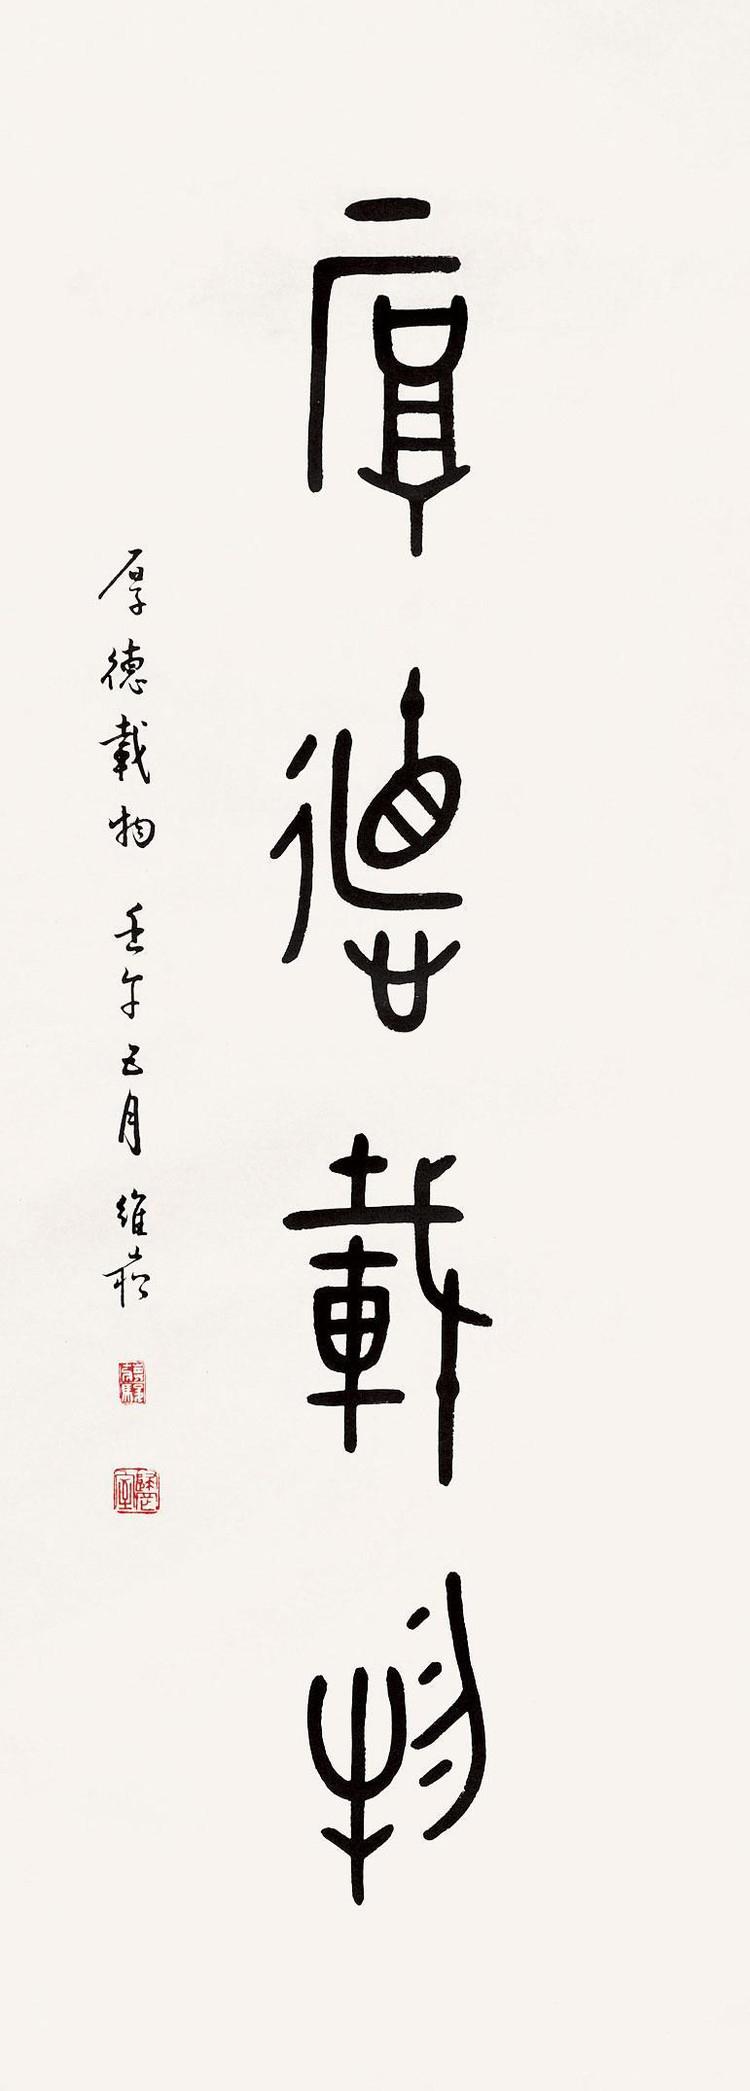 厚德載物
厚德載物 壬午五月 維崧